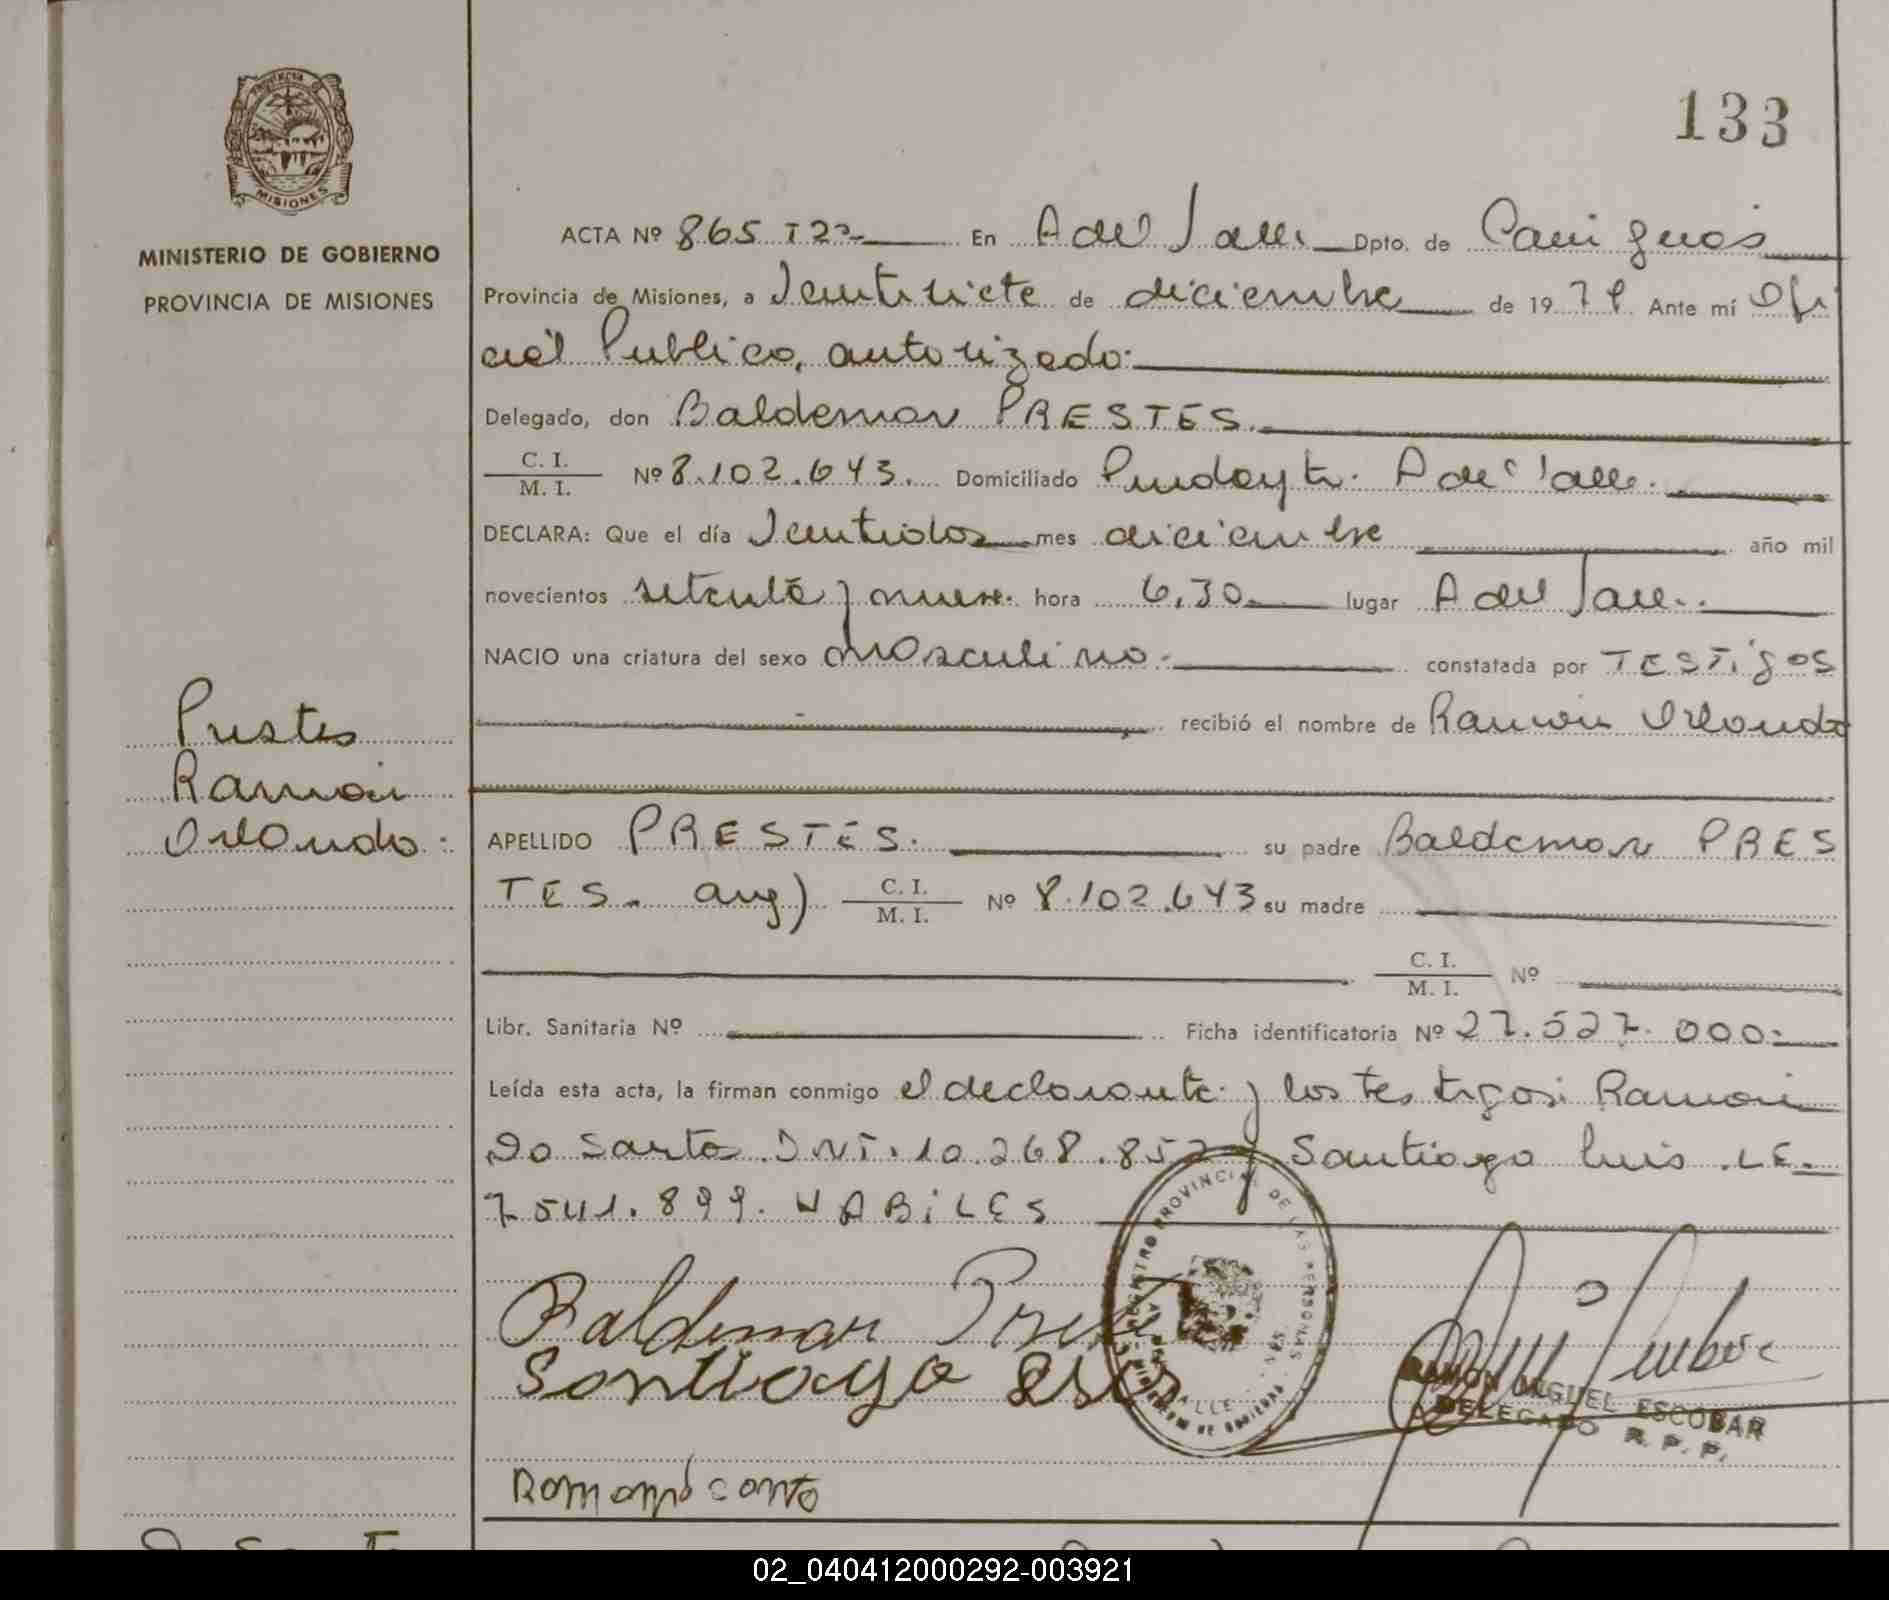 133
PROVINCIA
MISIONES
MINISTERIO DE GOBIERNO
PROVINCIA DE MISIONES
ACTA Nº 865 T2º En A del Valle Dpto. de Cainguás
Provincia de Misiones, a Veintisiete de diciembre de 1979 Ante mí Ofi
cial Publico, autorizado:
Delegado, don Baldemar PRESTES.
C. I. / M. I. Nº 8.102.643. Domiciliado Pindayti. A del Valle.
DECLARA: Que el día Veintidos mes diciembre año mil
novecientos setenta y nueve. hora 6,30 lugar A del Valle.
NACIO una criatura del sexo masculino. constatada por TESTigos
recibió el nombre de Ramón Orlando
Prestes
Ramón
Orlando.
APELLIDO PRESTES. su padre Baldemar PRES
TES. arg) C. I. / M. I. Nº 8.102.643 su madre
C. I. / M. I. Nº
Libr. Sanitaria Nº Ficha identificatoria Nº 27.527.000
Leída esta acta, la firman conmigo el declarante y los testigos: Ramón
Do Santo DNI. 10.268.852 y Santiago Luis LE.
7541.899. HABiLES
Baldemar
Santiago
REGISTRO PROVINCIAL DE LAS PERSONAS
RAMON MIGUEL ESCOBAR
DELEGADO R. P. P.
02_040412000292-003921